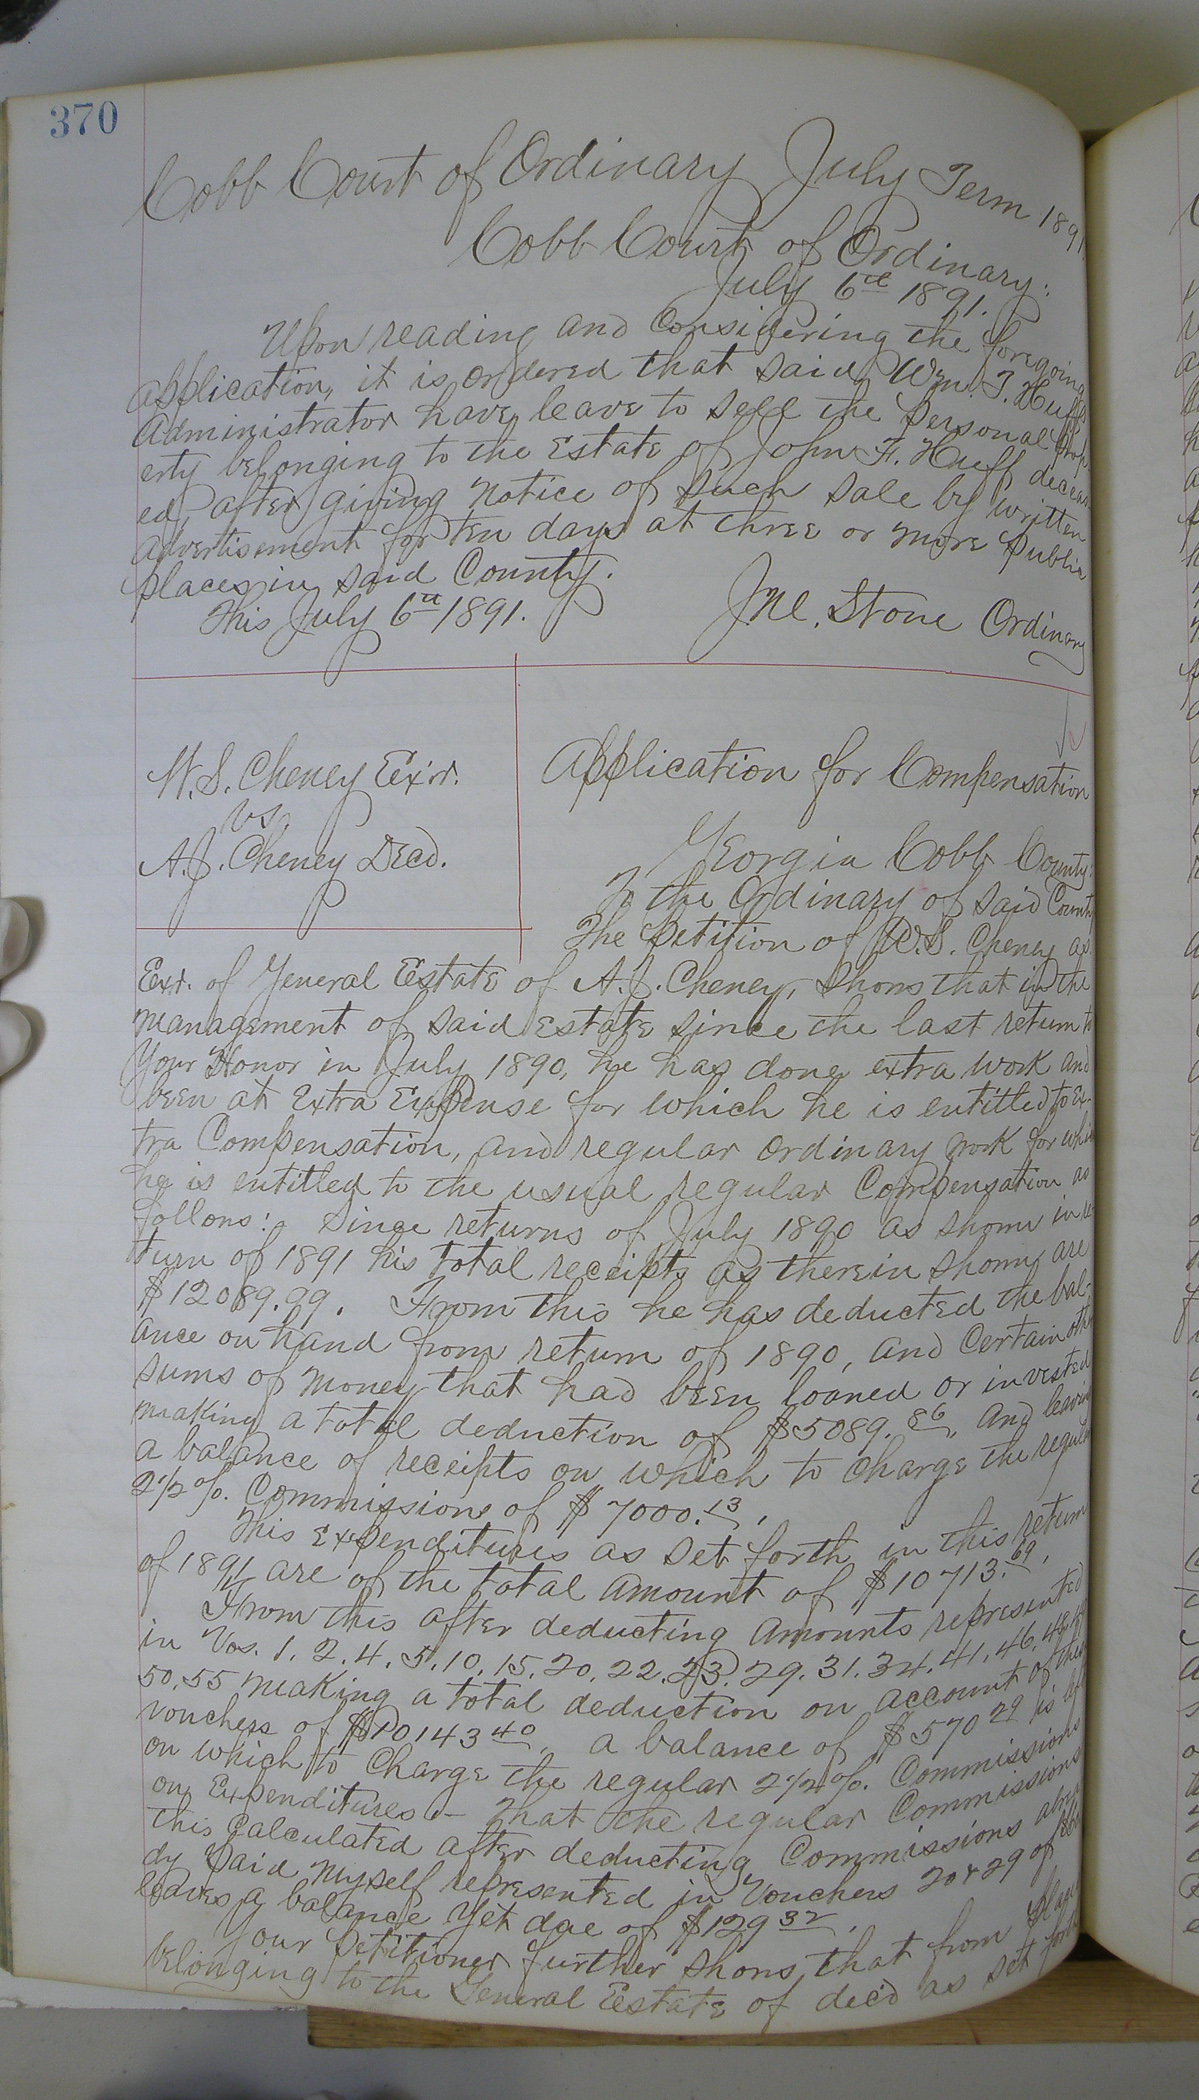 370
Cobb Court of Ordinary July Term 1891
Cobb Court of Ordinary:
July 6th 1891.
Upon reading and considering the foregoing
application, it is ordered that said Wm. T. Huff
Administrator have leave to sell the personal prop
erty belonging to the Estate of John F. Huff deceas
ed, after giving notice of such sale by written
advertisement for ten days at three or more public
places in said County.
This July 6th 1891.
Jno. Stone Ordinary
W. S. Cheney Exir.
vs.
A. J. Cheney Decd.
Application for Compensation
Georgia Cobb County:
To the Ordinary of said County
The Petition of W. S. Cheney as
Exr. of General Estate of A. J. Cheney, Shows that in the
management of said estate since the last return to
Your Honor in July 1890, he has done extra work and
been at extra Expense for which he is entitled to Ex-
tra Compensation, and regular ordinary work for which
he is entitled to the usual regular Compensation as
follows: Since returns of July 1890 as shown in re
turn of 1891 his total receipts as therein shown are
$12089.99. From this he has deducted the bal-
ance on hand from return of 1890, and certain other
sums of money that had been loaned or invested
making a total deduction of $5089.86, and leaving
a balance of receipts on which to charge the regular
2½%. Commissions of $7000.13.
This expenditures as set forth in this return
of 1891 are of the total amount of $10713.69.
From this after deducting amounts represented
in Vos. 1. 2. 4. 5. 10. 15. 20. 22. 23. 29. 31. 34. 41. 46. 48.
50. 55 making a total deduction on account of these
vouchers of $10143 40. a balance of $570 29 is left
on which to charge the regular 2½%. Commissions
on Expenditures - that the regular Commissions
this calculated after deducting Commissions alrea
dy paid myself represented in Vouchers 20 & 29 of
leaves a balance yet due of $129 32.
Your petitioner further shows, that from
belonging to the General Estate of dec'd as set forth